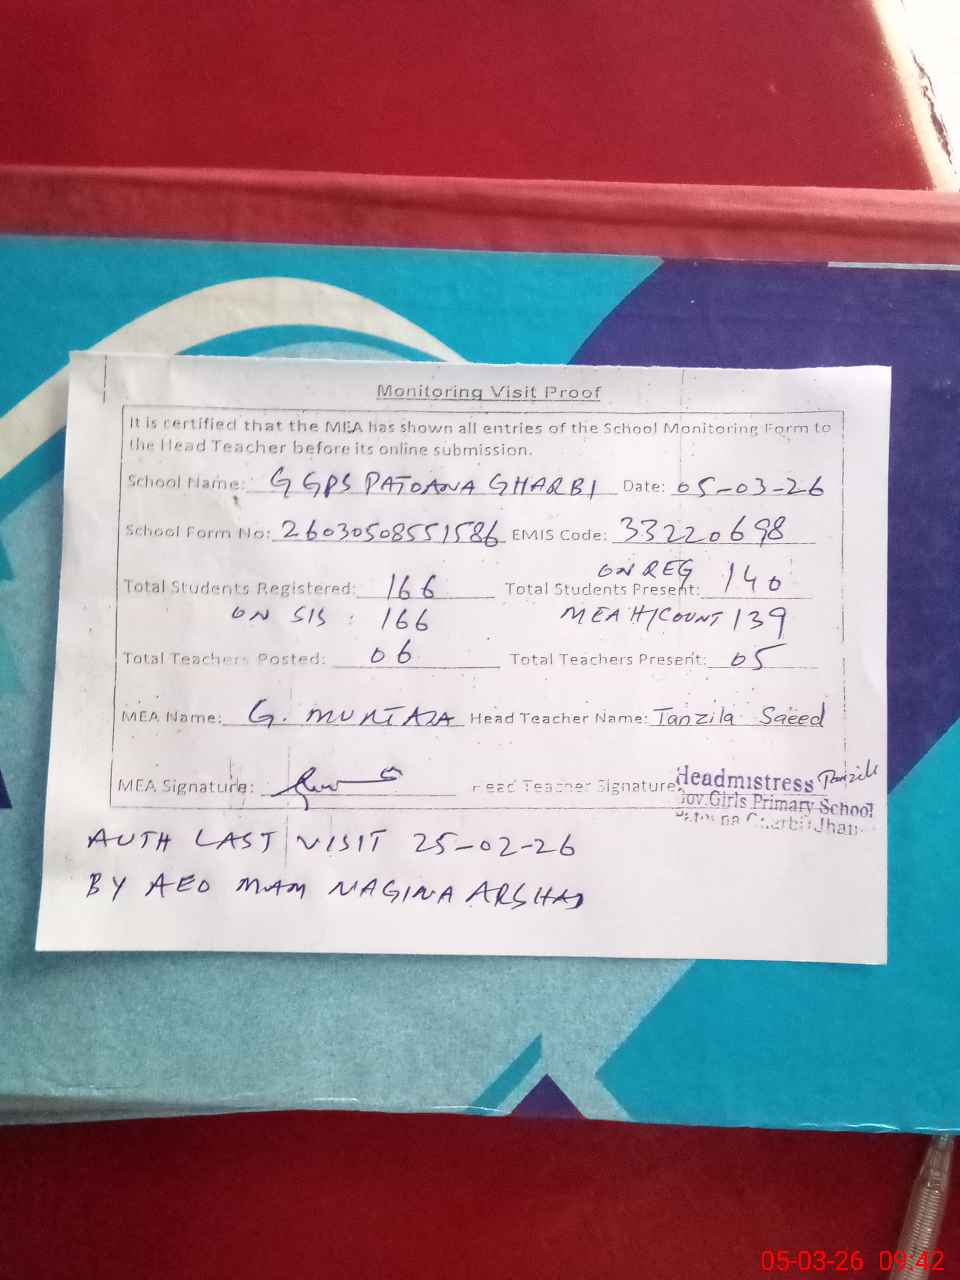 Monitoring Visit Proof
It is certified that the MEA has shown all entries of the School Monitoring Form to
the Head Teacher before its online submission.
School Name: GGPS PATOANA GHARBI Date: 05-03-26
School Form No: 26030508551586 EMIS Code: 33220698
ON REG
Total Students Registered: 166 Total Students Present: 140
ON SIS : 166 MEA H/COUNT 139
Total Teachers Posted: 06 Total Teachers Present: 05
MEA Name: G. MURTAZA Head Teacher Name: Tanzila Saeed
MEA Signature: Head Teacher Signature: Tanzila
Headmistress
Gov.Girls Primary School
Patoana Gharbi Jhan
AUTH LAST VISIT 25-02-26
BY AEO MAM NAGINA ARSHAD
05-03-26 09:42